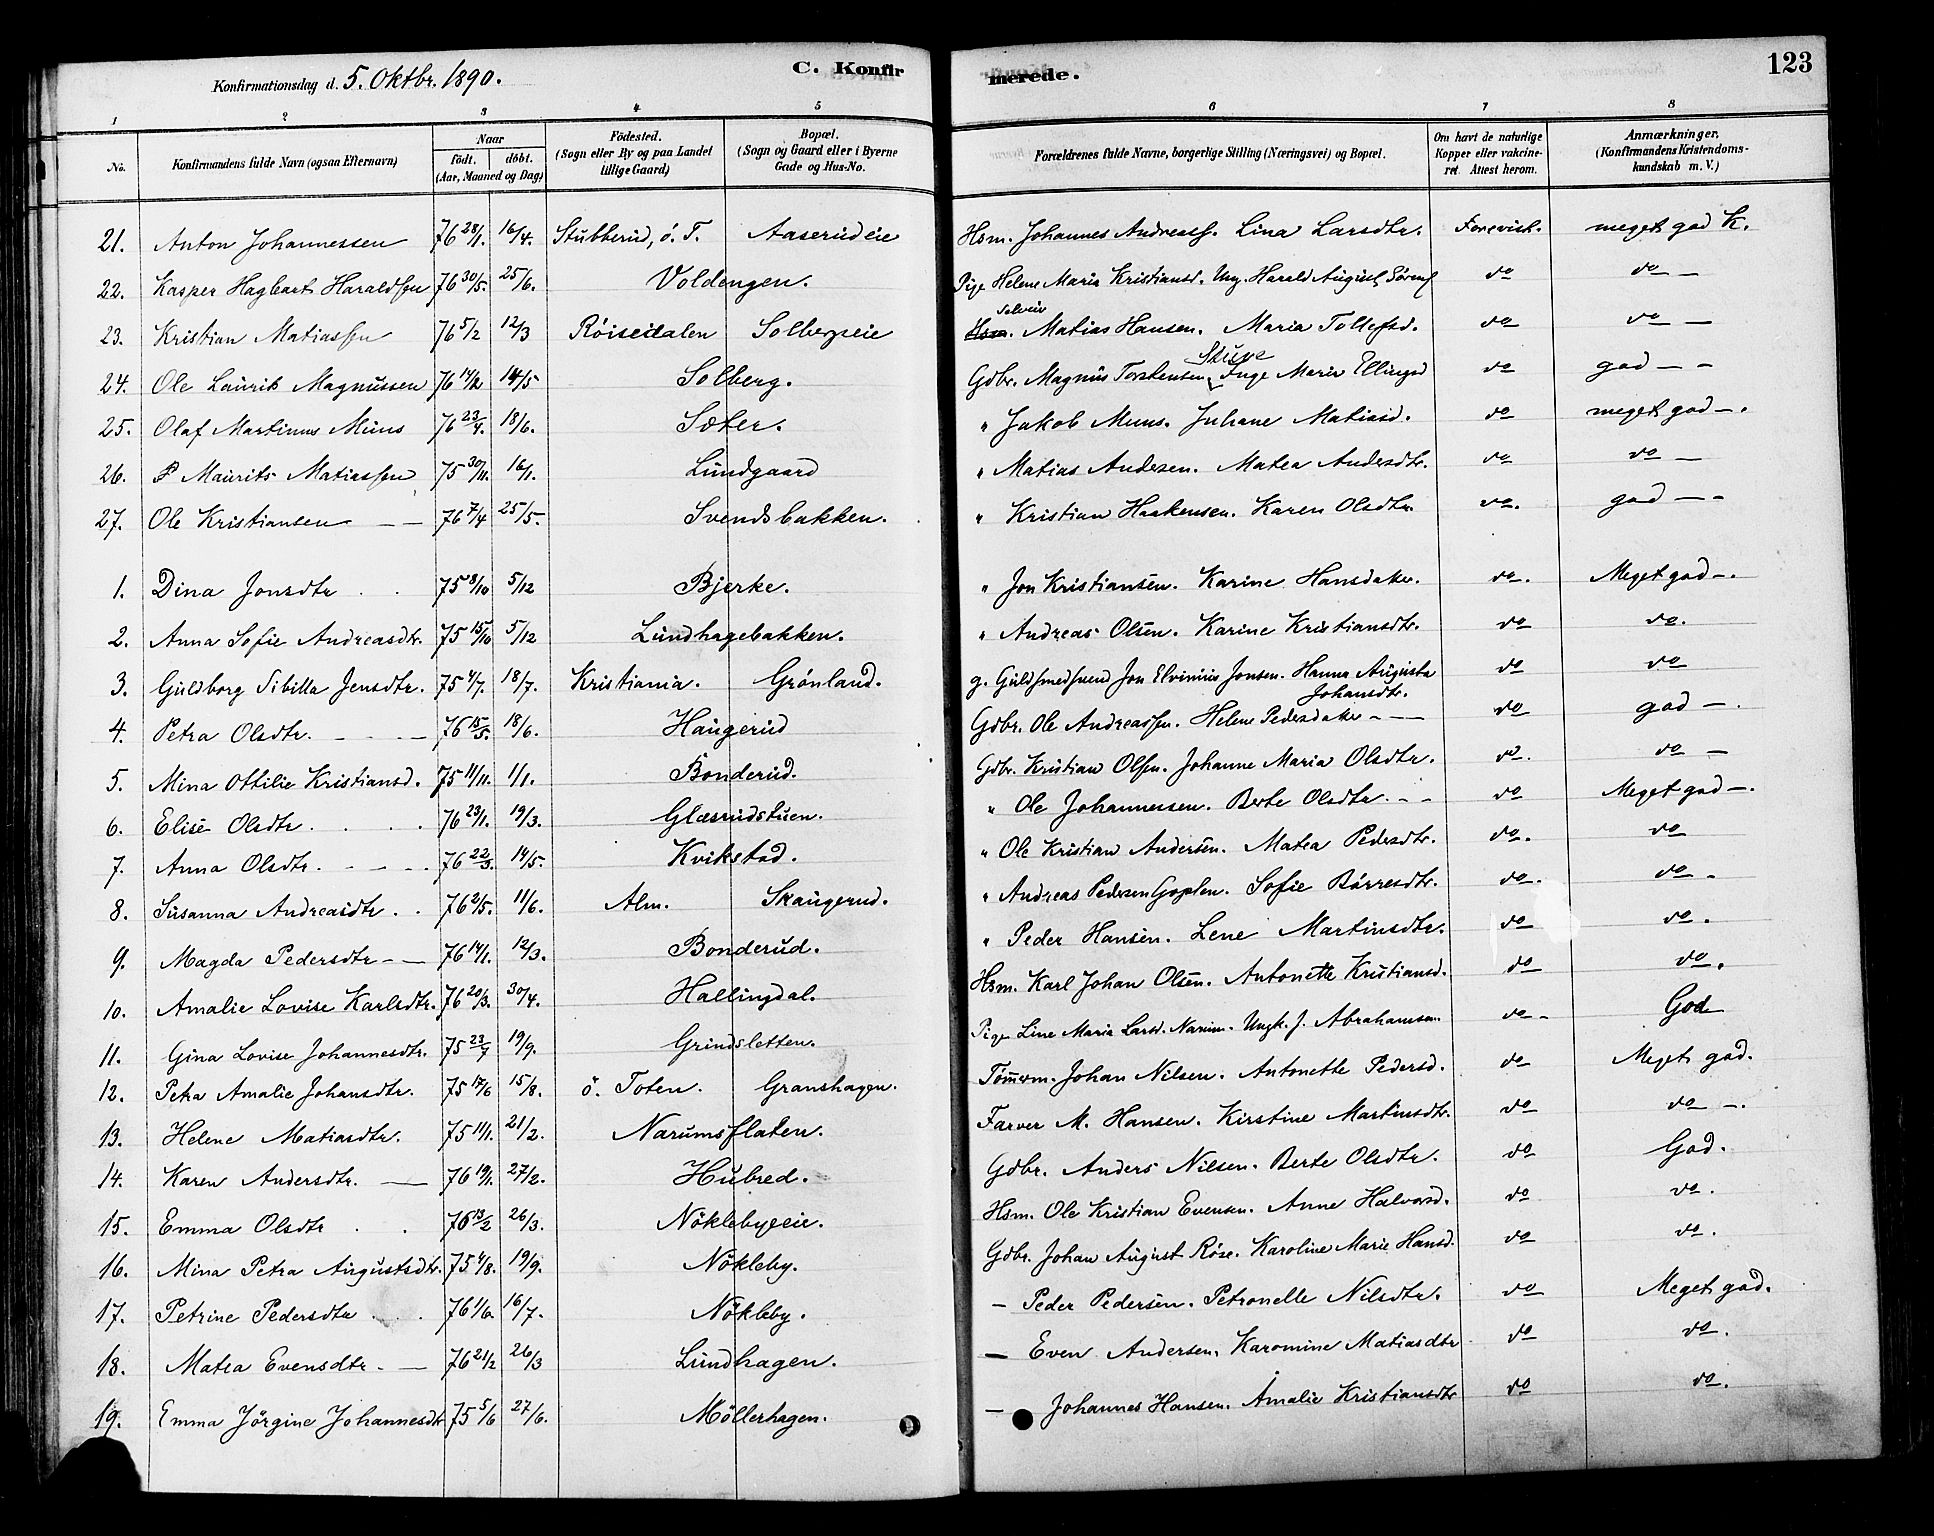 123
Konfirmationsdag d. 5. Oktbr. 1890.
C. Konfirmerede.
1 2 3 4 5 6 7 8
No.
Konfirmandens fulde Navn (ogsaa Efternavn)
Naar
födt. döbt.
(Aar, Maaned og Dag)
Födested.
(Sogn eller By og paa Landet
tillige Gaard)
Bopæl.
(Sogn og Gaard eller i Byerne
Gade og Hus-No.
Forældrenes fulde Navne, borgerlige Stilling (Næringsvei) og Bopæl.
Om havt de naturlige
Kopper eller vakcine-
ret Attest herom.
Anmærkninger.
(Konfirmandens Kristendoms-
kundskab m. V.)
21. Anton Johannessen 76 28/1. 16/4. Stubberud, ö. T. Aaserudeie Hsm. Johannes Andreass. Lina Larsdtr. Forevist. meget god K.
22. Kasper Hagbart Haraldsen 76 30/5. 25/6. Voldengen. Pige Helene Maria Kristiansd. Ung. Harald August Sørens do do —
23. Kristian Matiassen 76 5/2 12/3 Röisedalen Solbergeie Hsm. Selveier Matias Hansen. Maria Tollefsd. do do —
24. Ole Laurits Magnussen 76 14/2 14/5 Solberg. Gdbr. Magnus Torstensen Stuve Inge Maria Ellingsd do god — -
25. Olaf Martinus Muns 76 23/4. 18/6. Sæter. " Jakob Muns. Juliane Matiasd. do meget god —.
26. P Maurits Matiassen 75 30/11. 16/1. Lundgaard " Matias Andersen. Matea Andersdtr. do do —
27. Ole Kristiansen — — 76 7/4 25/5. Svendsbakken. " Kristian Haakensen. Karen Olsdtr do. god — -
1. Dina Jonsdtr . . 75 8/10 5/12 Bjerke. " Jon Kristiansen. Karine Hansdater. do. Meget god —.
2. Anna Sofie Andreasdtr. 75 15/10 5/12 Lundhagebakken. " Andreas Olsen. Karine Kristiansdtr. do do.
3. Guldborg Sibilla Jensdtr. 75 4/7. 18/7. Kristiania. Grönland. g. Guldsmedsvend Jon Elvinius Jonsen. Hanna Augusta Johansdtr. do do
4. Petra Olsdtr. - - - 76 15/5. 18/6. Haugerud Gdbr. Ole Andreassen. Helene Pedersdater - — do god —.
5. Mina Ottilie Kristiansd. 75 11/11. 1/1. Bonderud. Gdbr. Kristian Olsen. Johanne Maria Olsdtr. do. do —
6. Elise Olsdtr . . . . 76 23/1. 19/3. Glæsrudstuen. " Ole Johannessen. Berte Olsdtr - - do Meget god —.
7. Anna Olsdtr. - - - . 76 22/3. 14/5. Kvikstad. " Ole Kristian Andersen. Matea Pedersdtr. do. do
8. Susanna Andreasdtr . . 76 2/5. 11/6. Alm. Skaugerud. " Andreas Pedersen Goplen. Sofie Börresdtr. do. do -
9. Magda Pedersdtr — — 76 14/1. 12/3. Bonderud. " Peder Hansen. Lene Martinsdtr. do do.
10. Amalie Lovise Karlsdtr. 76 20/3. 30/4. Hallingdal. Hsm. Karl Johan Olsen. Antonette Kristiansd. do do.
11. Gina Lovise Johannesdtr. 75 23/7 19/9. Grindsletten. Pige Line Maria Larsd. Narum. Ungk. J. Abrahamsen. do - God
12. Petra Amalie Johansdtr. 75 17/6 15/8. ö. Toten. Granshagen. Tömerm. Johan Nilsen. Antonette Pedersd. do Meget god.
13. Helene Matiasdtr. 75 11/1. 21/2. Narumsflaten. Farver M. Hansen. Kirstine Martinsdtr. do do —.
14. Karen Andersdtr. — 76 19/1. 27/2. Hubred. Gdbr. Anders Nilsen. Berte Olsdtr. do God.
15. Emma Olsdtr . . 76 13/2 26/3. Nöklebyeie. Hsm. Ole Kristian Evensen. Anne Halvorsd. do do.
16. Mina Petra Augustsdtr. 75 4/8. 19/9. Nökleby. Gdbr. Johan August Röse. Karoline Marie Hansd. do do.
17. Petrine Pedersdtr . . . 76 1/6. 16/7. Nökleby. — Peder Pedersen. Petronelle Nilsdtr. do Meget god.
18. Matea Evensdtr. — 76 21/2 26/3 Lundhagen. — Even Andersen. Karomine Matiasdtr do do.
19. Emma Jörgine Johannesdtr 75 5/6 27/6. Möllerhagen. — Johannes Hansen. Amalie Kristiansdtr do do.